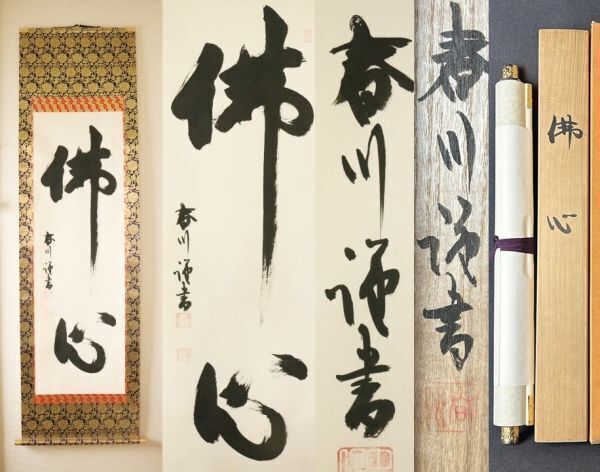 佛心
春川謹書
佛心
春川謹書
春川謹書
春川謹書
佛心